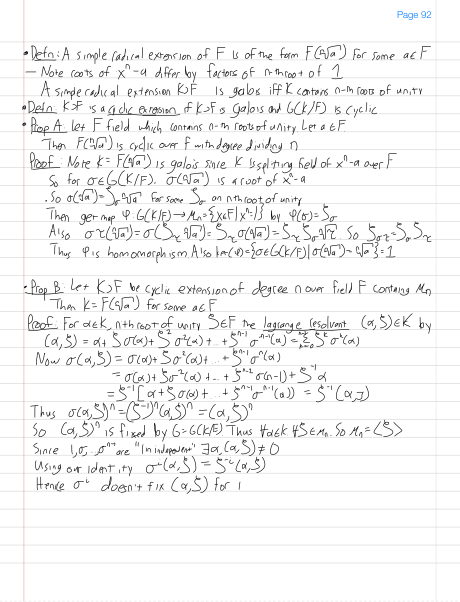 Page 92
• Defn: A simple radical extension of F is of the form F(ⁿ√a) for some a∈F
— Note roots of xⁿ-a differ by factors of n-th root of 1
A simple radical extension K⊃F is galois iff K contains n-th roots of unity
• Defn: K⊃F is a cyclic extension if K⊃F is galois and G(K/F) is cyclic
• Prop A: Let F field which contains n-th roots of unity. Let a∈F.
Then F(ⁿ√a) is cyclic over F with degree dividing n
Proof: Note K=F(ⁿ√a) is galois since K is splitting field of xⁿ-a over F
So for σ∈G(K/F), σ(ⁿ√a) is a root of xⁿ-a
. So σ(ⁿ√a)=ζ_σ ⁿ√a for some ζ_σ an nth root of unity
Then get map φ: G(K/F)→μₙ={x∈F|xⁿ=1} by φ(σ)=ζ_σ
Also στ(ⁿ√a)=σ(ζ_τ ⁿ√a)=ζ_τ σ(ⁿ√a)=ζ_τ ζ_σ ⁿ√a So ζ_στ=ζ_σ ζ_τ
Thus φ is homomorphism. Also ker(φ)={σ∈G(K/F)|σ(ⁿ√a)=ⁿ√a}=1
• Prop B: Let K⊃F be cyclic extension of degree n over field F containg μₙ
Then K=F(ⁿ√a) for some a∈F
Proof: For α∈K, nth root of unity ζ∈F the lagrange resolvant (α,ζ)∈K by
(α,ζ) = α+ζσ(α)+ζ²σ²(α)+...+ζⁿ⁻¹σⁿ⁻¹(α)=Σζᵏσᵏ(α)
Now σ(α,ζ) = σ(α)+ζσ²(α)+...+ζⁿ⁻¹σⁿ(α)
= σ(α)+ζσ²(α)+...+ζⁿ⁻²σ(n-1)+ζ⁻¹α
=ζ⁻¹[α+ζσ(α)+...+ζⁿ⁻¹σⁿ⁻¹(α)] = ζ⁻¹(α,ζ)
Thus σ(α,ζ)ⁿ=(ζ⁻¹)ⁿ(α,ζ)ⁿ=(α,ζ)ⁿ
So (α,ζ)ⁿ is fixed by G=G(K/F). Thus ∀α∈K ∀ζ∈μₙ. So μₙ=<ζ>
Since 1,σ,..σⁿ⁻¹ are "lin independent" ∃α,(α,ζ)≠0
Using our identity σⁱ(α,ζ)=ζ⁻ⁱ(α,ζ)
Hence σⁱ doesn't fix (α,ζ) for i